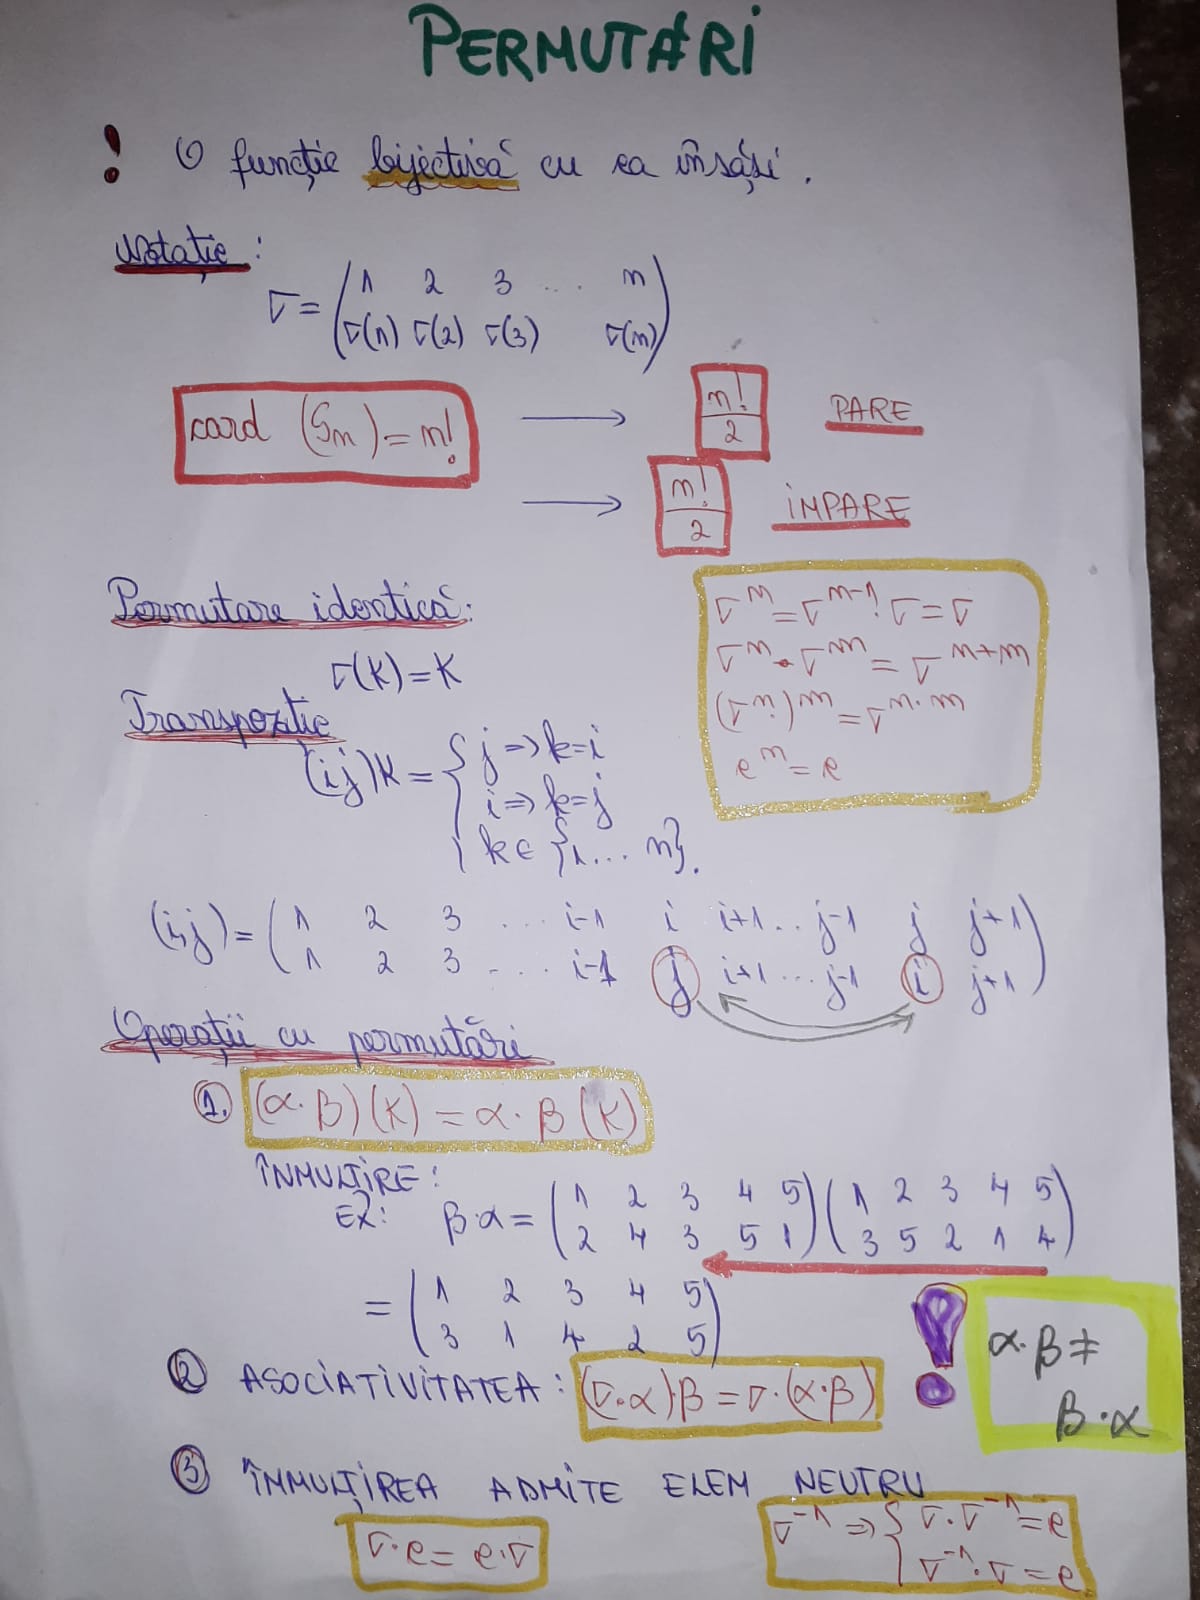 PERMUTĂRI
! O funcție bijectivă cu ea însăși.
Notație:
σ = (1 2 3 ... n
σ(1) σ(2) σ(3) σ(n))
card (Sn) = n! → n!/2 PARE
→ n!/2 IMPARE
Permutare identică:
σ(K) = K
σ^n = σ^(n-1) · σ = σ
σ^n · σ^m = σ^(n+m)
(σ^n)^m = σ^(n·m)
e^n = e
Transpoziție
(ij)K = { j => k=i
i => k=j
k ∈ {1... n}.
(i,j) = (1 2 3 ... i-1 i i+1 .. j-1 j j+1
1 2 3 ... i-1 j i+1 ... j-1 i j+1)
Operații cu permutări
1. (α·β)(K) = α·β(K)
ÎNMULȚIRE:
EX: β·α = (1 2 3 4 5)(1 2 3 4 5)
(2 4 3 5 1)(3 5 2 1 4)
= (1 2 3 4 5
3 1 4 2 5)
! α·β ≠
β·α
2 ASOCIATIVITATEA: (σ·α)·β = σ·(α·β)
3 ÎNMULȚIREA ADMITE ELEM NEUTRU
σ·e = e·σ
σ^-1 => { σ·σ^-1 = e
σ^-1·σ = e